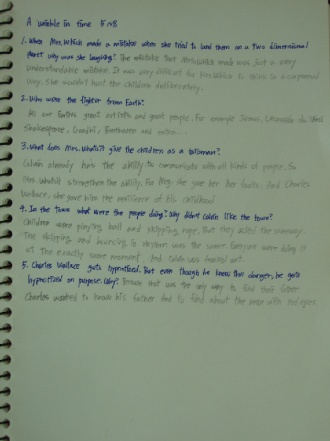 A wrinkle in time 5~8
1. When Mrs. Which made a mistake when she tried to land them on a two dimensional
planet why was she laughing? The mistake that Mrs. Which made was just a very
understandable mistake. It was very difficult for Mrs. Which to think in a corporeal
way. She wouldn't hurt the children deliberately.
2. Who were the fighter from Earth?
All our Earth's great artists and great people. For example Jesus, Leonardo da Vinci
Shakespeare, Gandhi, Beethoven and more...
3. What does Mrs. Whatsit give the children as a talisman?
Calvin already has the ability to communicate with all kinds of people. So
Mrs. Whatsit strengthen the ability. For Meg, she gave her her faults. And Charles
Wallace, she gave him the resilience of his childhood
4. In the town what were the people doing? Why didn't Calvin like the town?
Children were playing ball and skipping rope. But they acted the
The skipping and bouncing in rhythm was the same. Everyone were doing it
at the exactly same moment. And Calvin
5. Charles Wallace gets hypnotized. But even though he knew this danger, he gets
hypnotized on purpose. Why? Because that was the only way to find their father
Charles wanted to know his father had to find about the man with red eyes